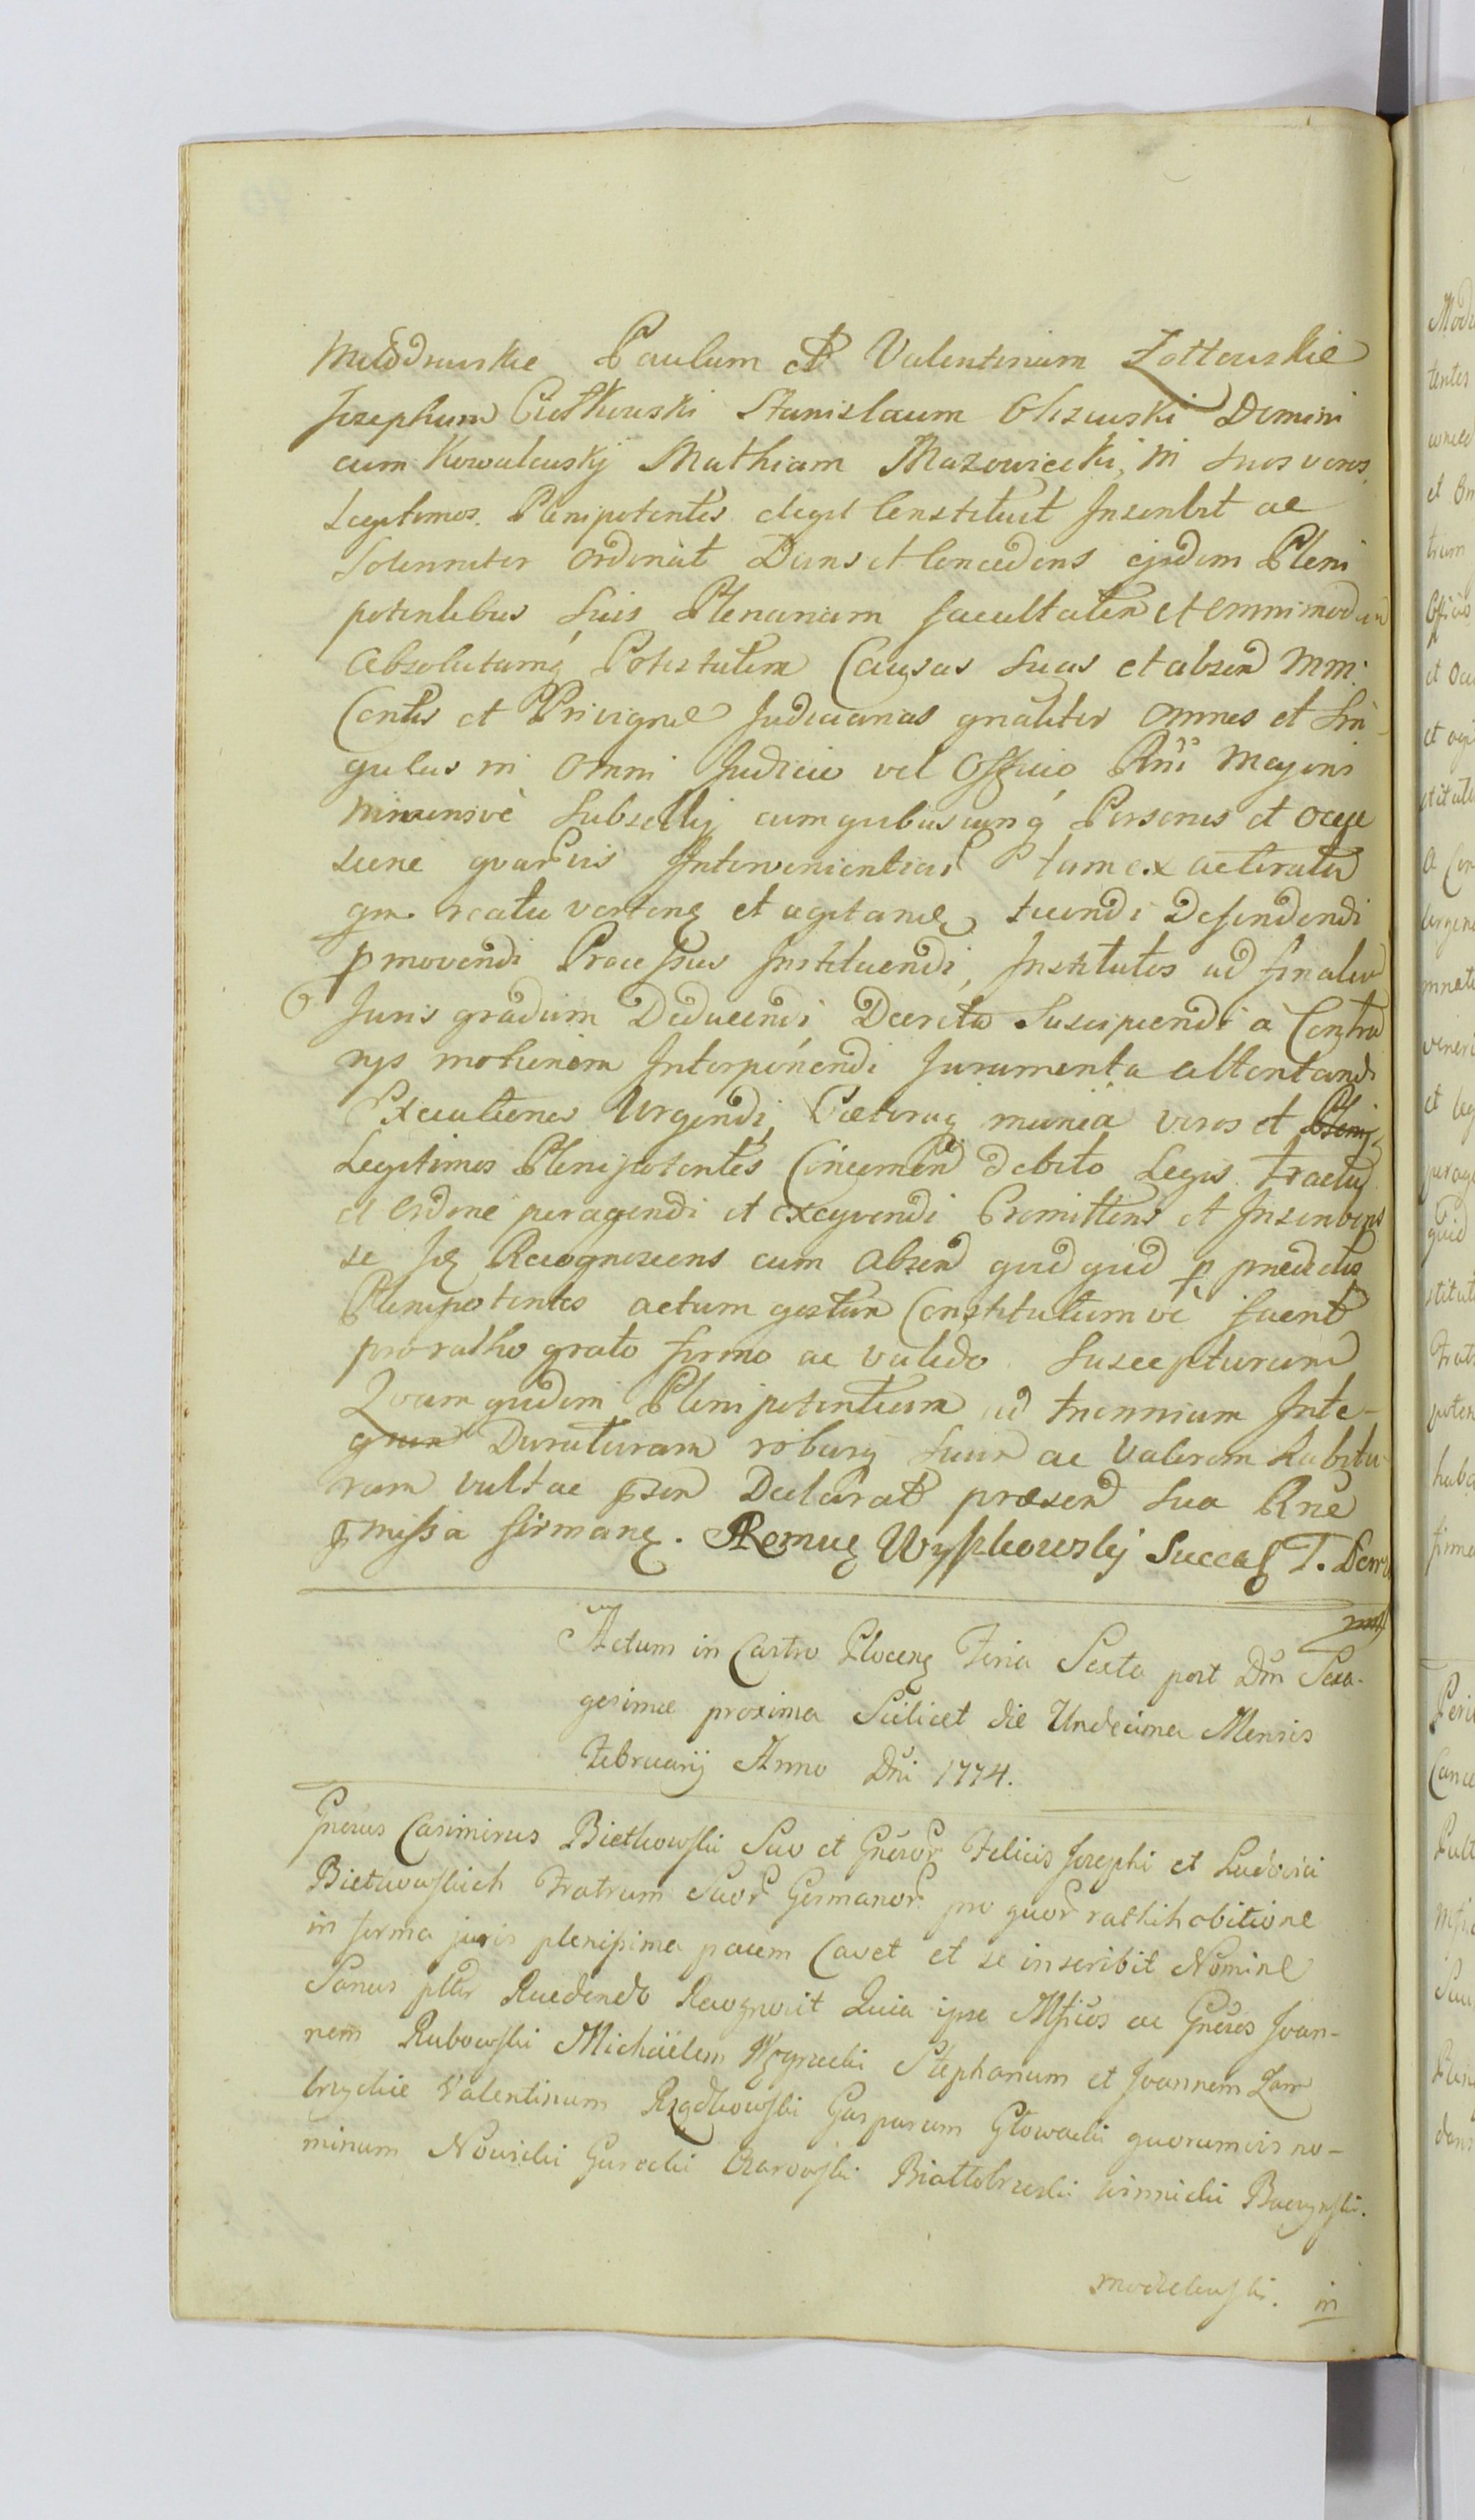 Paulum et Valentinum Zottowskie
Josephum Ciolkowski Stanislaum Olszewski Domini
cum Kowalewskÿ Mathiam Mazowiecki, in suos veros
Legitimos Plenipotentes elegit Constituit Inscribit ac
Solenniter ordinat Dans et Concedens ejsdem Pleni
potentibus suis Plenariam facultatem et omnimodam
Absolutamq Potestatem Causas suas et absen Mm:
Contis et Privignae Judiciarias gnaliter omnes et Sin
gulas in omni Judicio vel Officio Rni Majoris
Minorisvè Subsellij cum quibusvis cunq Personis et occa
sione quarvis Intervenientias tum ex actoratu
qm reatu verten et agitan tuendi Defendendi
pmovendi Processus Instituendi, Institutos ad finalem
Juris gradum Deducendi Decreta Suscipiendi à Contra
rys motionem Interponendi Juramenta attentandi
Executiones Urgendi, Caeteraq munia veros et
Legitimos Plenipotentes Concernen debito Legis tractu
et ordine peragendi et exequendi Promittens et Inscribens
se Recognoscens cum absen quidquid p praedictos
Plenipotentes actum gestum Constitutum vè fuerit
pro ratho grato firmo ac valido Suscepturum
Qvam quidem Plenipotentiam ad triennium Inte-
grum Duraturam roburq suum ac Valorem habitu
ram vult ac psen Declarat praesen sua Rne
pmissa firman. Remug Wyſzkowskj Succaſ T. Dow
mp
Actum in Castro Plocen Feria Sexta post Dm Sexa-
gesimae proxima Scilicet die Undecima Mensis
Februarÿ Anno Dni 1774.
Gnerus Casimirus Bieƚkowſki Suo et Gneror Felicis Josephi et Ludovici
Bieƚkowſkich Fratrum Suor Germanor pro quor rathihabitione
in forma juris plenissima pacem Cavet et se inscribit Nomine
Sanus pttr Raecedendo Recognovit Quia ipse Mficos ac Gneros Joan-
nem Rubowſki Michaëlem Węgrzecki Stephanum et Joannem Zam
brzyckie Valentinum Rządkowſki Gasparum Gƚowacki quorumvis no-
minum Nowicki Gurecki Biaƚƚobrzeski Winnicki Baczyński.
Modzelewſki. in